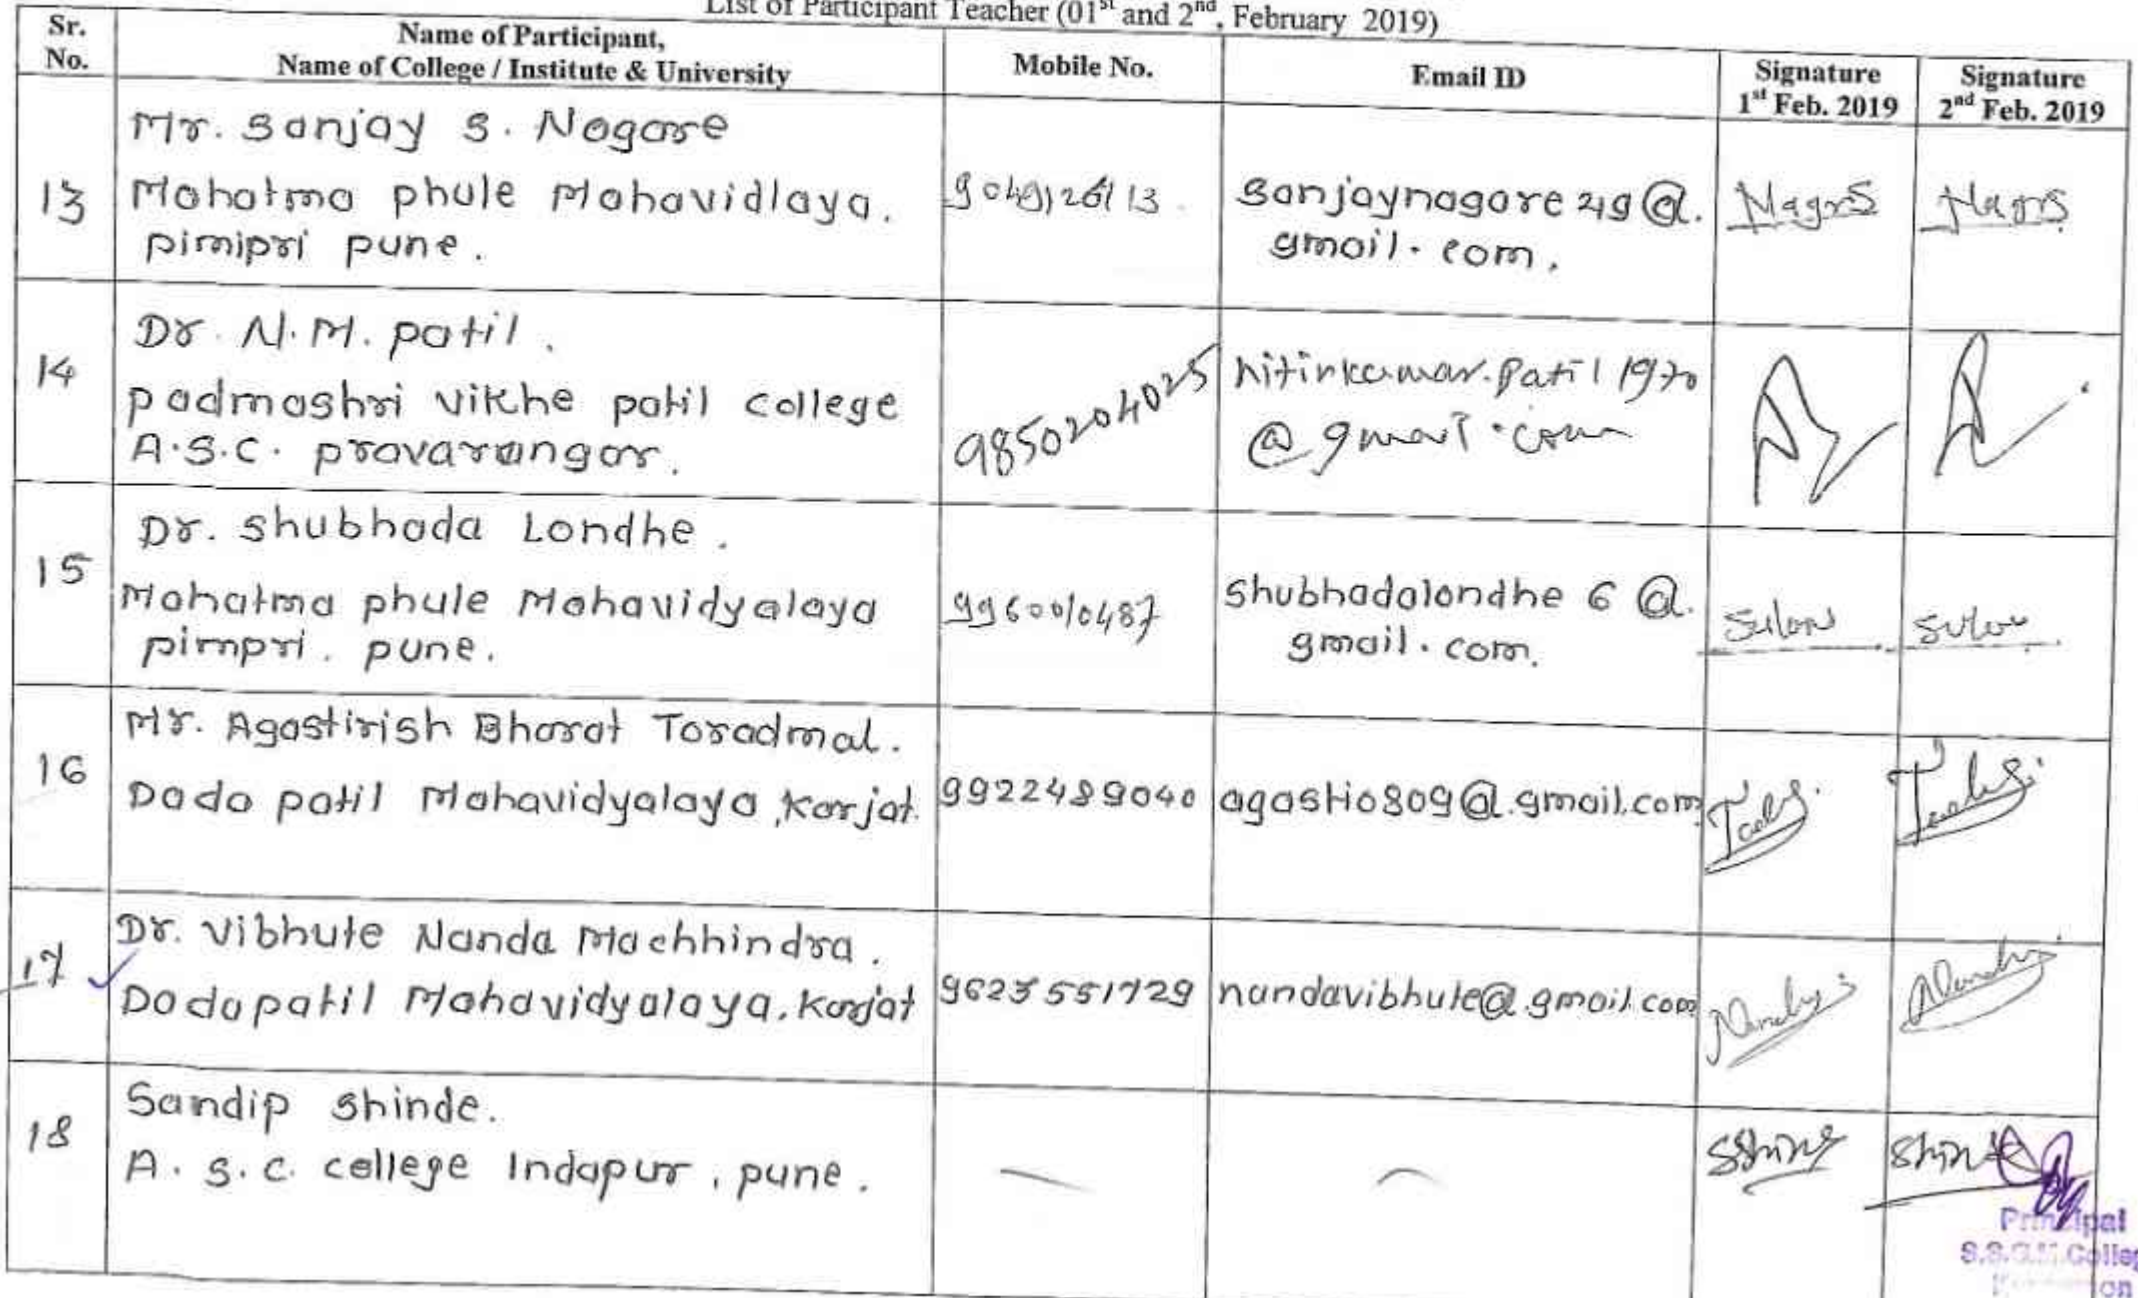 List of Participant Teacher (01st and 2nd, February 2019)
Sr. No.
Name of Participant,
Name of College / Institute & University
Mobile No.
Email ID
Signature
1st Feb. 2019
Signature
2nd Feb. 2019
13
Mr. Sanjay S. Nagare
Mahatma phule Mahavidlaya.
pimipri pune.
9049126113
sanjaynagare249@.
gmail.com.
14
Dr. N.M. patil.
padmashri vikhe patil college
A.S.C. pravarangar.
9850204025
nitinkumar.patil1970
@gmail.com
15
Dr. shubhada Londhe.
Mahatma phule Mahavidyalaya
pimpri. pune.
9960010487
shubhadalondhe 6 @.
gmail.com.
16
Mr. Agastirish Bharat Toradmal.
Dada patil Mahavidyalaya, Karjat.
9922489040
agasti0809@.gmail.com
17
Dr. Vibhute Nanda Machhindra.
Dadapatil Mahavidyalaya, Karjat
9623551729
nandavibhute@.gmail.com
18
Sandip shinde.
A. S. C. college Indapur, pune.
Principal